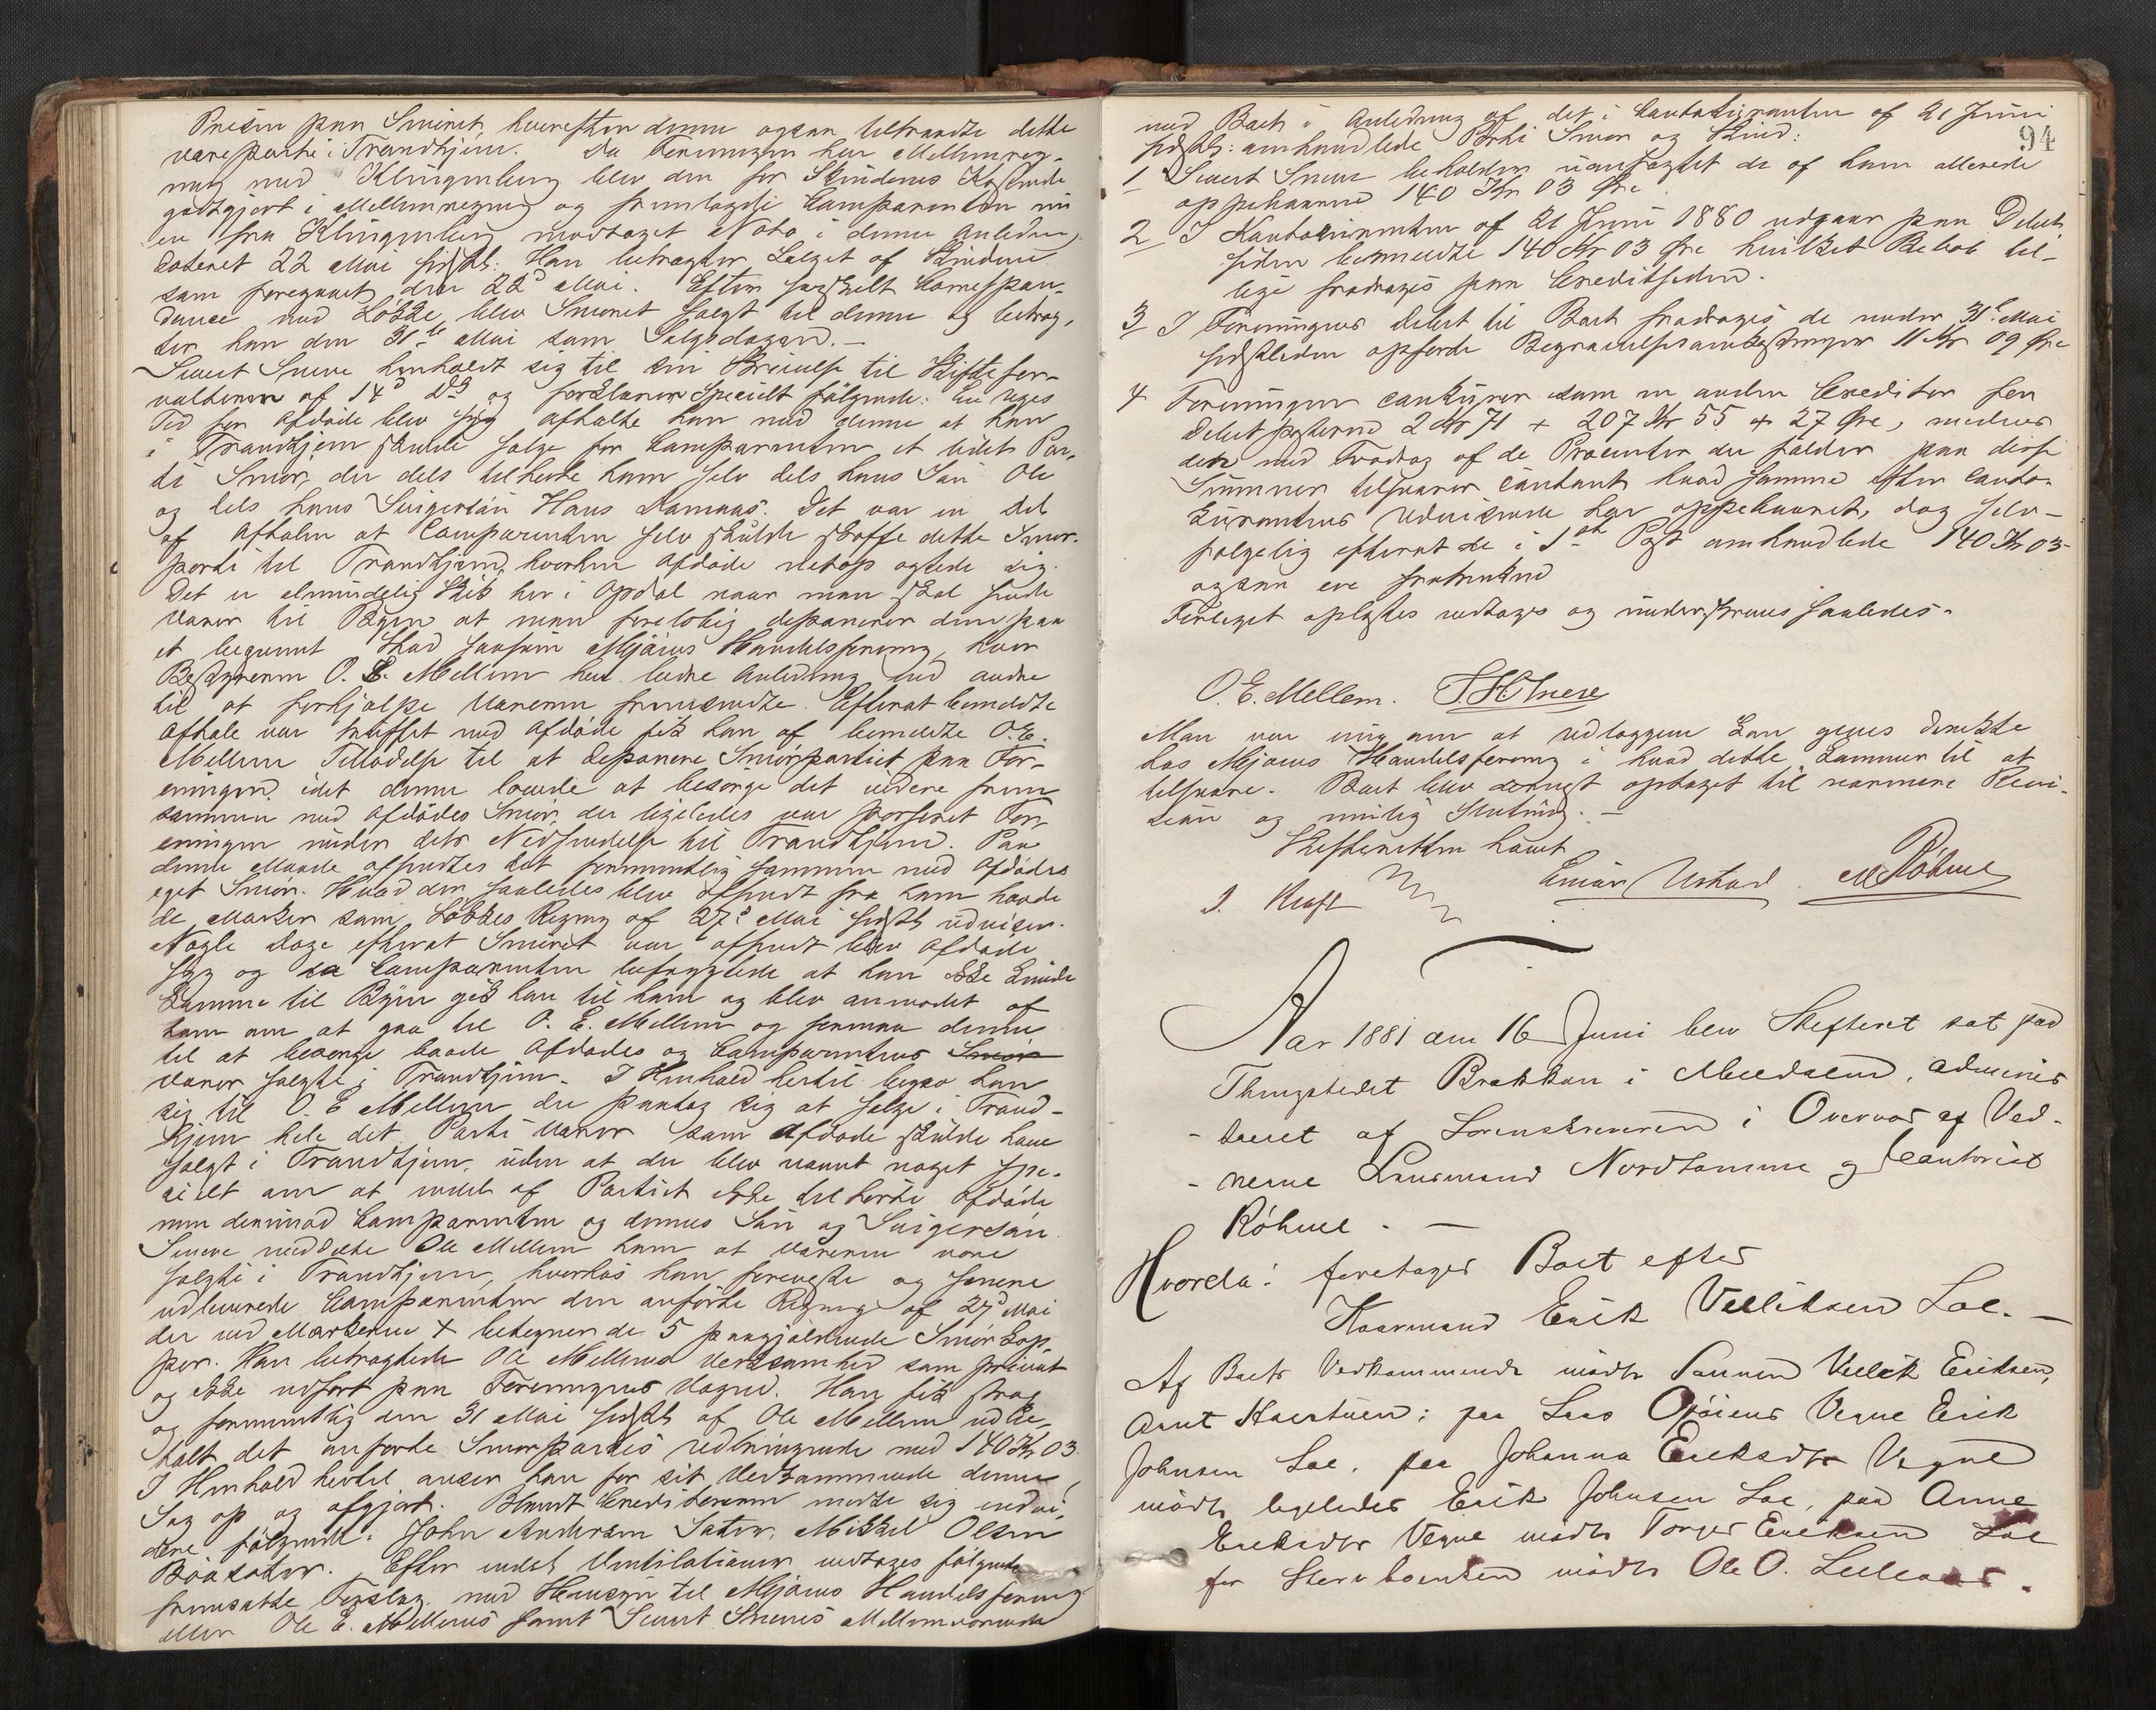 Prisen paa Smøret, hvorefter denne ogsaa tiltraadte dette
vareparti i Trondhjem. Da Foreningen har Mellemreg-
ning med Klingenberg blev den for Skindenes Kostende
godtgjort i Mellemregning og fremlagde Comparenten nu
en fra Klingenberg modtaget Nota i denne Anledn,
dateret 22 Mai sidstl: Han betragter Salget af Skindene
som foregaaet den 22d Mai. Efter Correspon-
dance med Løkke, blev Smøret solgt til denne og betrag,
ter han den 31te Mai som Salgsdagen.-
Sivert Sneve henholdt sig til sin Skrivelse til Skiftefor-
valteren af 14d ds og forklarer specielt følgende: En Uges
Tid før Afdøde blev syg aftalte han med denne at han
i Trondhjem skulde sælge for Comparenten et lidet Par,
ti Smør, der dels tilhørte ham selv dels hans Søn Ole
og dels hans Svigersøn Hans. Det var en Del
af Aftalen at Comparenten selv skulde skaffe dette Smør-
parti til Trondhjem, hvorhen Afdøde netop agtede sig.
Det er almindelig Skik her i Opdal naar man skal sende
Varer til Byen at man foreløbig deponerer dem paa
et beqvemt Sted saasom Mjøens Handelsforening, hvor
Bestyreren O. E. Mellem har bedre Anledning end andre
til at forhjælpe Varerne fremsendte. Efterat bemeldte
Aftale var truffet med Afdøde fik han af bemeldte O.E.
Mellem Tilladelse til at deponere Smørpartiet paa For-
eningen, idet denne lovede at besørge det videre frem
sammen med Afdødes Smør, der ligeledes var Foren
eningen under dets Nedsendelse til Trondhjem. Paa
denne Maade afsendtes det formentlig sammen med Afdødes
eget Smør. Hvad der saaledes blev afsendt fra ham havde
de Mærker som Løkkes Regning af 27d Mai sidstl udviser.
Nogle Dage efterat Smøret var afsendt blev Afdøde
syg og da Comparenten befrygtede at han ikke kunde
komme til Byen gik han til ham og blev anmodet af
ham om at gaa til O. E. Mellem og formaa denne
til at besørge baade Afdødes og Comparentens Smør
Varer solgte i Trondhjem. I Henhold hertil begav han
sig til O. E Mellem der paatog sig at sælge i Trond-
hjem hele det Parti Varer som Afdøde skulde have
solgt i Trondhjem, uden at der blev nævnt noget spe-
cielt om at endel af Partiet ikke tilhørte Afdøde
men derimod Comparenten og dennes Søn og Svigersøn.
Senere meddelte Ole Mellem ham at Varerne vare
solgte i Trondhjem, hvorhos han foreviste og senere
udleverede Comparenten den anførte Regning af 27d Mai
der ved Mærkerne + betegner de 5 paagjældende Smørkop,
per. Han betragtede Ole Mellems Virksomhed som privat
og ikke udført paa Foreningens Vegne. Han fik strax
og formentlig den 31 Mai sidstl af Ole Mellem udbe-
talt det anførte Smørpartis Udbringende med 140 Kr 03
I Henhold hertil anser han for sit Vedkommende denne
Sag op og afgjort. Blandt Creditorerne mødte sig endvi-
dere følgende: John Andersen Sæter, Mikkel Olsen
Bøasæter. Efter endel Ventilationer vedtages følgende
fremsatte Forslag med Hensyn til Mjøens Handelsforening
eller Ole E. Mellems samt Sivert Sneves Mellemværende
94
med Boet i Anledning af det i Contocouranten af 21 Juni
sidstl: omhandlede Parti Smør og Skind:
1 Sivert Sneve beholder uanfægtet de af ham allerede
oppebaarne 140 Kr 03 Øre.
2 I Kontocouranten af 21 Juni 1880 udgaar paa Debet
siden bemeldte 140 Kr 03 Øre hvilket Beløb til-
lige fradrages paa Creditsiden.
3 I Foreningens Debet til Boet fradrages de under 31te Mai
sidstleden opførte Begravelsesomkostninger 11 Kr 09 Øre
4 Foreningen conkurrer som en anden Creditor for
Debetposterne 2 Kr 71 + 207 Kr 55 + 27 Øre, medens
den med Fradrag af de Procenter der falder paa disse
Summer tilsvarer contant hvad samme efter Conto-
kurantens Udvisende har oppebaaret, dog selv-
følgelig efterat de i 1ste Post omhandlede 140 Kr 03
ogsaa ere fratrukne
Forliget oplæstes vedtoges og underskreves saaledes.
O. E. Mellem. S. H Sneve
Man var enig om at Udlæggene kan gives direkte
hos Mjøens Handelsforening i hvad dette kommer til at
tilsvare. Boet blev dernæst optaget til nærmere Revi-
sion og mulig Slutning.-
Skifteretten hævet
J. Kraft Einar M Røhme
Aar 1881 den 16 Juni blev Skifteret sat paa
Thingstedet Brækken i Meldalen, adminis
- treret af Sorenskriveren i Overvær af Vid-
- nerne Lensmand Nordtømme og Cantorist
Røhme. -
Hvorda: foretages Boet efter
Kaarmand Erik Velliksen Loe. -
Af Boets Vedkommende mødte Sønnen Vellik Eriksen,
Arnt; paa Lars Vegne Erik
Johnsen Loe, paa Johanna Eriksdtr Vegne
mødte ligeledes Erik Johnsen Loe, paa Anne
Eriksdtr Vegne mødte Torger Eriksen Loe
for Stervboenken mødte Ole O.